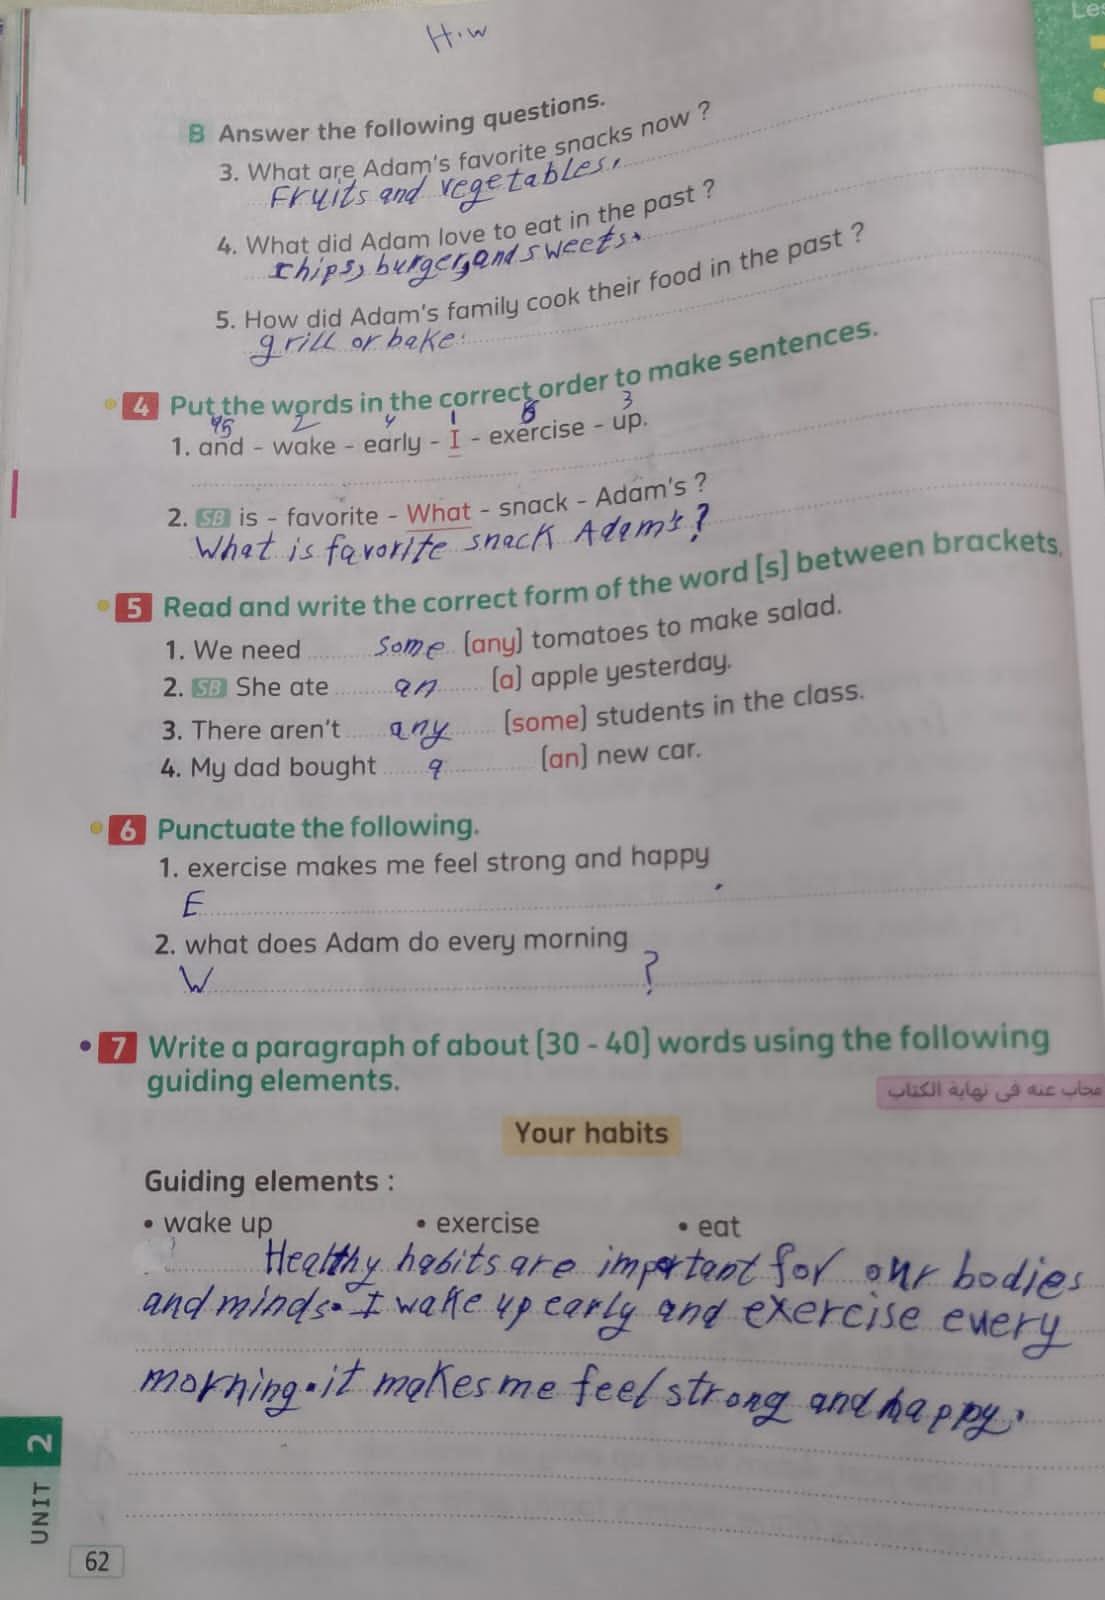 H.w
Les
B Answer the following questions.
3. What are Adam's favorite snacks now ?
Fruits and vegetables.
4. What did Adam love to eat in the past ?
chips, burger, and sweets.
5. How did Adam's family cook their food in the past ?
grill or bake.
4 Put the words in the correct order to make sentences.
5 2 4 1 6 3
1. and - wake - early - I - exercise - up.
2. SB is - favorite - What - snack - Adam's ?
What is favorite snack Adam's?
5 Read and write the correct form of the word [s] between brackets.
1. We need some [any] tomatoes to make salad.
2. SB She ate an [a] apple yesterday.
3. There aren't any [some] students in the class.
4. My dad bought a [an] new car.
6 Punctuate the following.
1. exercise makes me feel strong and happy
E .
2. what does Adam do every morning
W ?
7 Write a paragraph of about [30 - 40] words using the following
guiding elements.
مجاب عنه فى نهاية الكتاب
Your habits
Guiding elements :
• wake up • exercise • eat
Healthy habits are important for our bodies
and minds. I wake up early and exercise every
morning. it makes me feel strong and happy.
UNIT 2
62